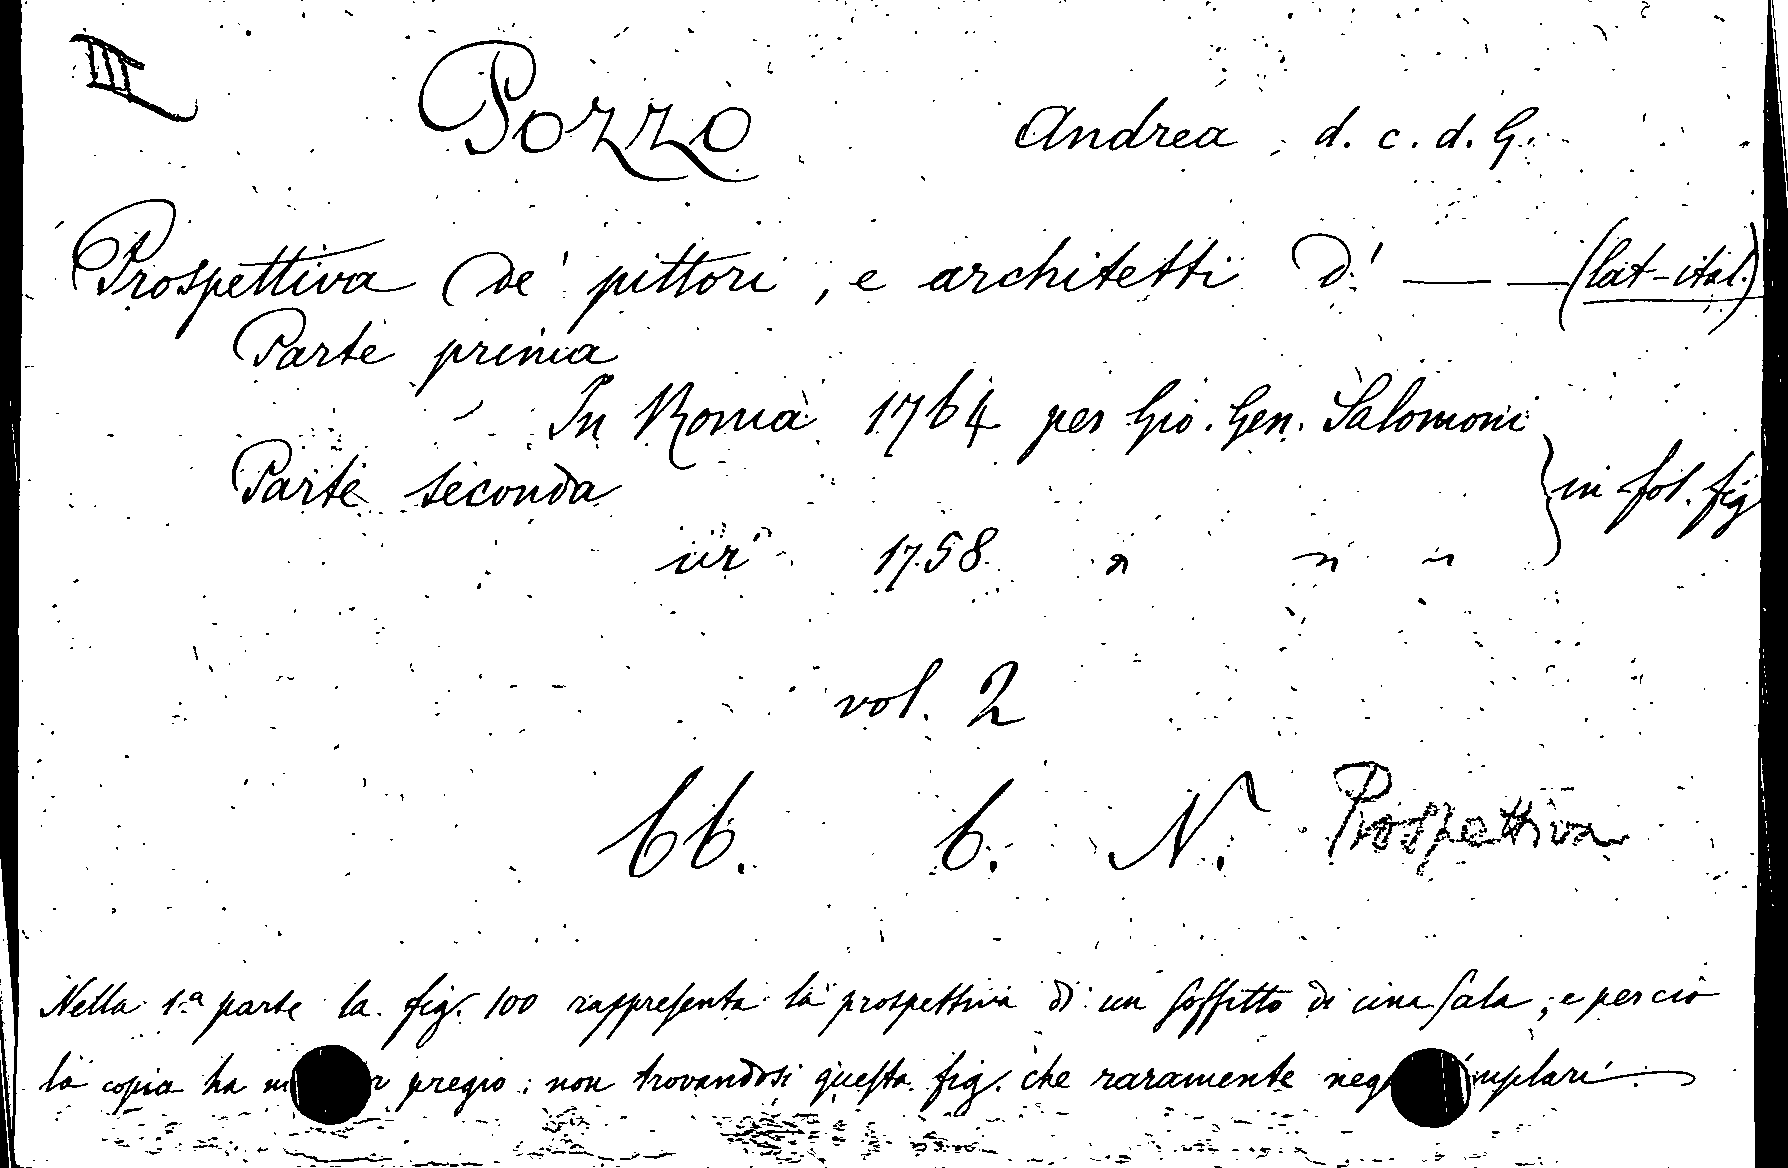 III
Pozzo Andrea, d. c. d. G.
Prospettiva de' pittori, e architetti d' — — (lat-ital.)
Parte prima
In Roma 1764 per Gio. Gen. Salomoni
Parte seconda
in fol. fig
ivi 1758 " " "
vol. 2
bb. 6. N. Prospettiva
Nella 1.ª parte la fig. 100 rappresenta la prospettiva di un soffitto di una sala, e perciò
la copia ha pregio: non trovandosi questa fig. che raramente